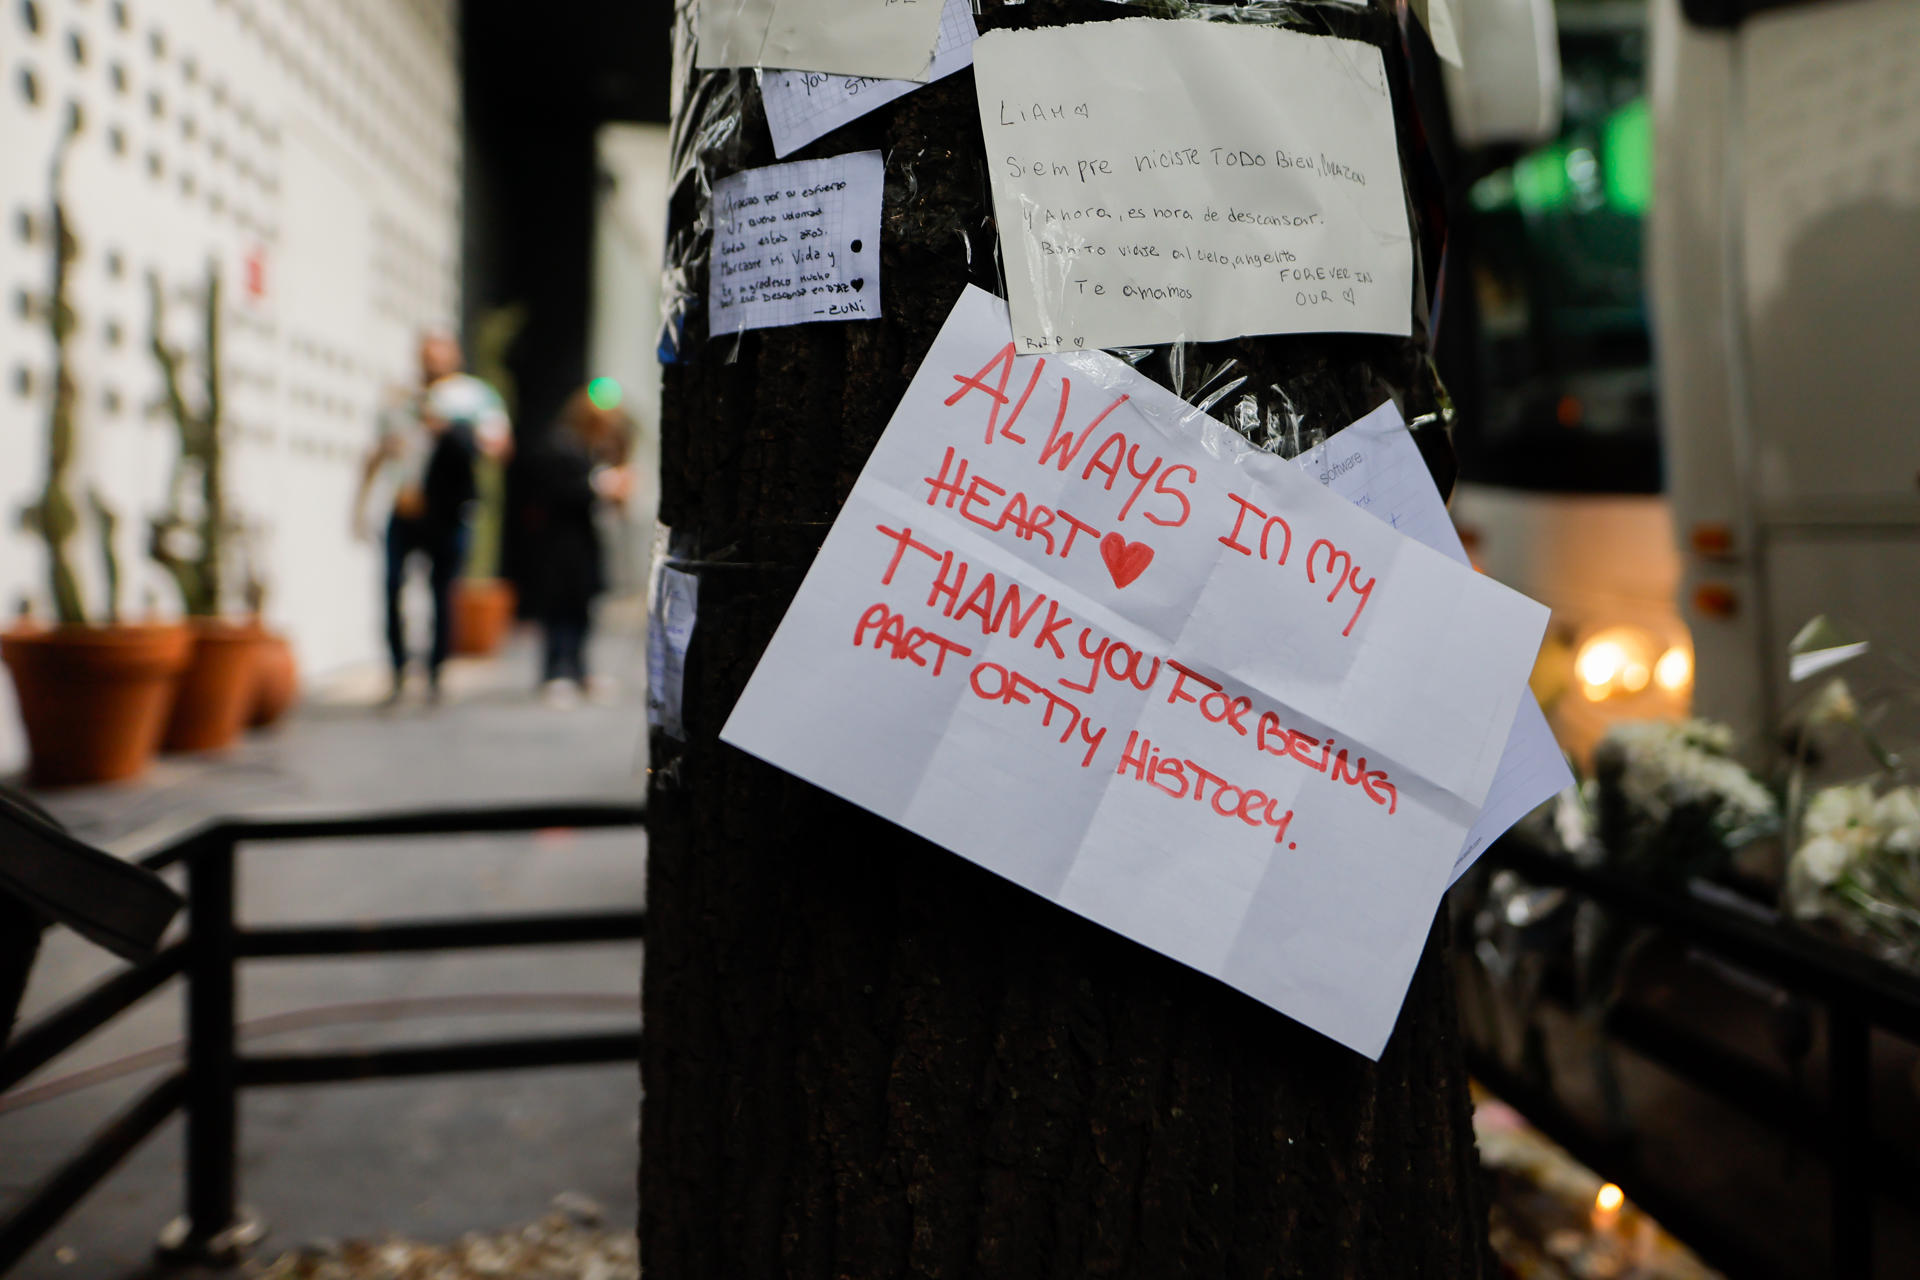 YOU
LIAM ♡
Siempre hiciste TODO BIEN, CORAZON
y Ahora, es hora de descansar.
Bonito viaje al cielo, angelito
Te amamos
FOREVER IN
OUR ♡
R.I.P ♡
Gracias por su esfuerzo
y buena voluntad
todos estos años.
Marcaste Mi Vida y
te agradezco mucho
por eso. Descansa en PAZ ♥
- ZUNI
ALWAYS IN MY
HEART ♥
THANK YOU FOR BEING
PART OF MY HISTORY.
software